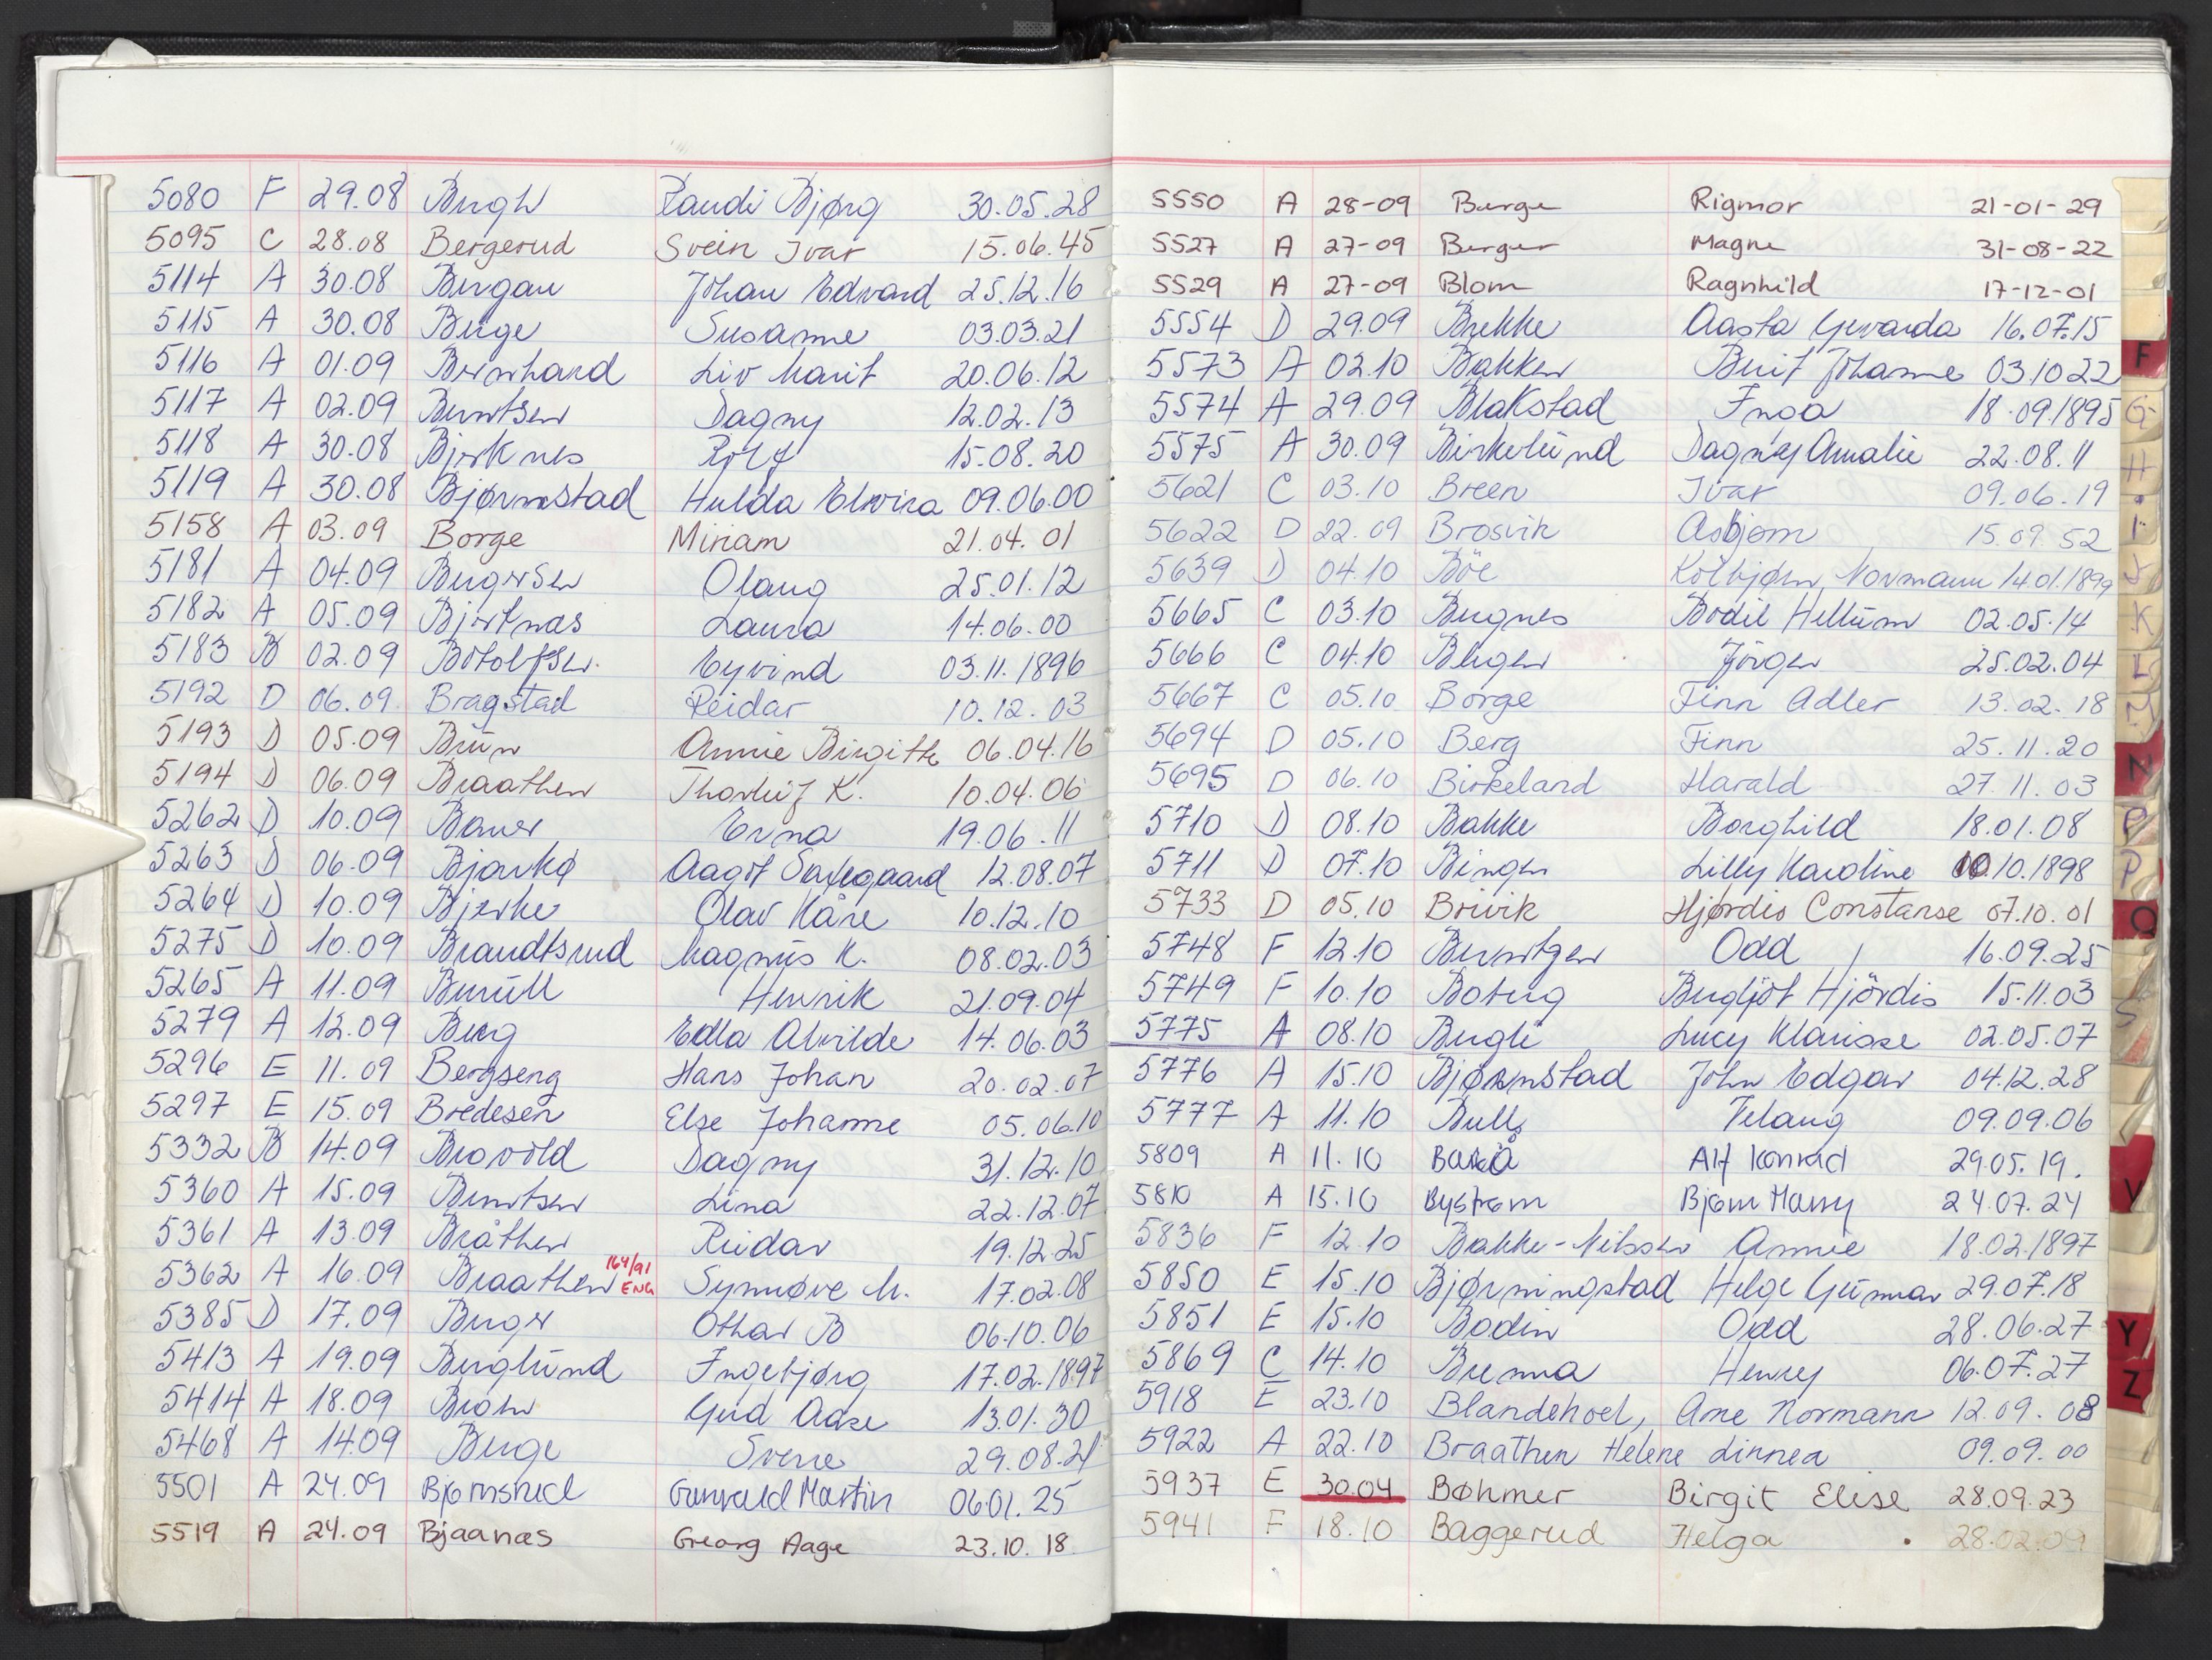 5080 F 29.08 Bergh Randi Bjørg 30.05.28
5095 C 28.08 Bergerud Svein Ivar 15.06.45
5114 A 30.08 Bergan Johan Edvard 25.12.16
5115 A 30.08 Berge Susanne 03.03.21
5116 A 01.09 Bernhard Liv Marit 20.06.12
5117 A 02.09 Berntsen Dagny 12.02.13
5118 A 30.08 Bjerknes Rolf 15.08.20
5119 A 30.08 Bjørnstad Hulda Elvira 09.06.00
5158 A 03.09 Borge Miriam 21.04.01
5181 A 04.09 Bergersen Olaug 25.01.12
5182 A 05.09 Bjerknæs Laura 14.06.00
5183 B 02.09 Botolfsen Eyvind 03.11.1896
5192 D 06.09 Bragstad Reidar 10.12.03
5193 D 05.09 Brun Annie Birgithe 06.04.16
5194 D 06.09 Braathen Thorleif K. 10.04.06
5262 D 10.09 Bauer Erna 19.06.11
5263 D 06.09 Bjarkø Aagot 12.08.07
5264 D 10.09 Bjerke Olav Kåre 10.12.10
5275 D 10.09 Brandtsrud Magnus K. 08.02.03
5265 A 11.09 Henrik 21.09.04
5279 A 12.09 Berg Edla Alvilde 14.06.03
5296 E 11.09 Bergseng Hans Johan 20.02.07
5297 E 15.09 Bredesen Else Johanne 05.06.10
5332 B 14.09 Brovold Dagny 31.12.10
5360 A 15.09 Berntsen Lina 22.12.07
5361 A 13.09 Bråthen Reidar 19.12.25
5362 A 16.09 Braathen 164/91 ENG Synnøve M. 17.02.08
5385 D 17.09 Berger Othar B 06.10.06
5413 A 19.09 Berglund Ingebjørg 17.02.1897
5414 A 18.09 Gerd Aase 13.01.30
5468 A 14.09 Berge Sverre 29.08.21
5501 A 24.09 Bjørnsrud Gunvald Martin 06.01.25
5519 A 24.09 Bjaanæs Georg Aage 23.10.18
5550 A 28-09 Berge Rigmor 21-01-29
5527 A 27-09 Berger Magne 31-08-22
5529 A 27-09 Blom Ragnhild 17-12-01
5554 D 29.09 Brekke Aasta Gerarda 16.07.15
5573 A 02.10 Bakken Berit Johanne 03.10 22
5574 A 29.09 Blakstad Inga 18.09.1895
5575 A 30.09 Birkelund Dagny Amalie 22.08.11
5621 C 03.10 Breen Ivar 09.06.19
5622 D 22.09 Brosvik Asbjørn 15.09.52
5639 D 04.10 Böe Kolbjørn Normann 14.01.1899
5665 C 03.10 Bergnes Bodil Hellum 02.05.14
5666 C 04.10 Berger Jörgen 25.02.04
5667 C 05.10 Borge Finn Adler 13.02.18
5694 D 05.10 Berg Finn 25.11.20
5695 D 06.10 Birkeland Harald 27.11.03
5710 D 08.10 Bakke Borghild 18.01.08
5711 D 07.10 Bingen Lilly Karoline 10.10.1898
5733 D 05.10 Brivik Hjørdis Constanse 07.10.01
5748 F 12.10 Berntzen Odd 16.09.25
5749 F 10.10 Boberg Bergljot Hjördis 15.11.03
5775 A 08.10 Bergli Lucy Klarisse 02.05.07
5776 A 15.10 Bjørnstad John Edgar 04.12.28
5777 A 11.10 Bull Velaug 09.09.06
5809 A 11.10 Alf Konrad 29.05.19.
5810 A 15.10 Bystrøm Bjørn Harry 24.07.24
5836 F 12.10 Bakke-Nilssen Annie 18.02.1897
5850 E 15.10 Bjørningstad Helge Gunnar 29.07.18
5851 E 15.10 Bodin Odd 28.06.27
5869 C 14.10 Brenna Henry 06.07.27
5918 E 23.10 Blandehoel, Arne Normann 12.09.08
5922 A 22.10 Braathen Helene Linnea 09.09.00
5937 E 30.04 Bøhmer Birgit Elise 28.09.23
5941 F 18.10 Baggerud Helga 28.02.09
F
G
H
I
J
K
L
N
P
S
V
Y
Z